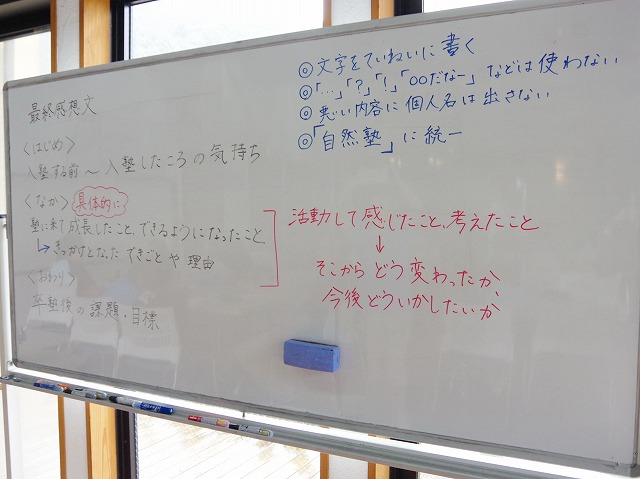 最終感想文
<はじめ>
入塾する前～入塾したころの気持ち
<なか> 具体的に
塾に来て成長したこと、できるようになったこと
↳きっかけとなったできごとや理由
<おわり>
卒塾後の課題・目標
◎文字をていねいに書く
◎「…」「?」「!」「○○だなー」などは使わない
◎悪い内容に個人名は出さない
◎「自然塾」に統一
活動して感じたこと、考えたこと
↓
そこからどう変わったか、
今後どういかしたいか